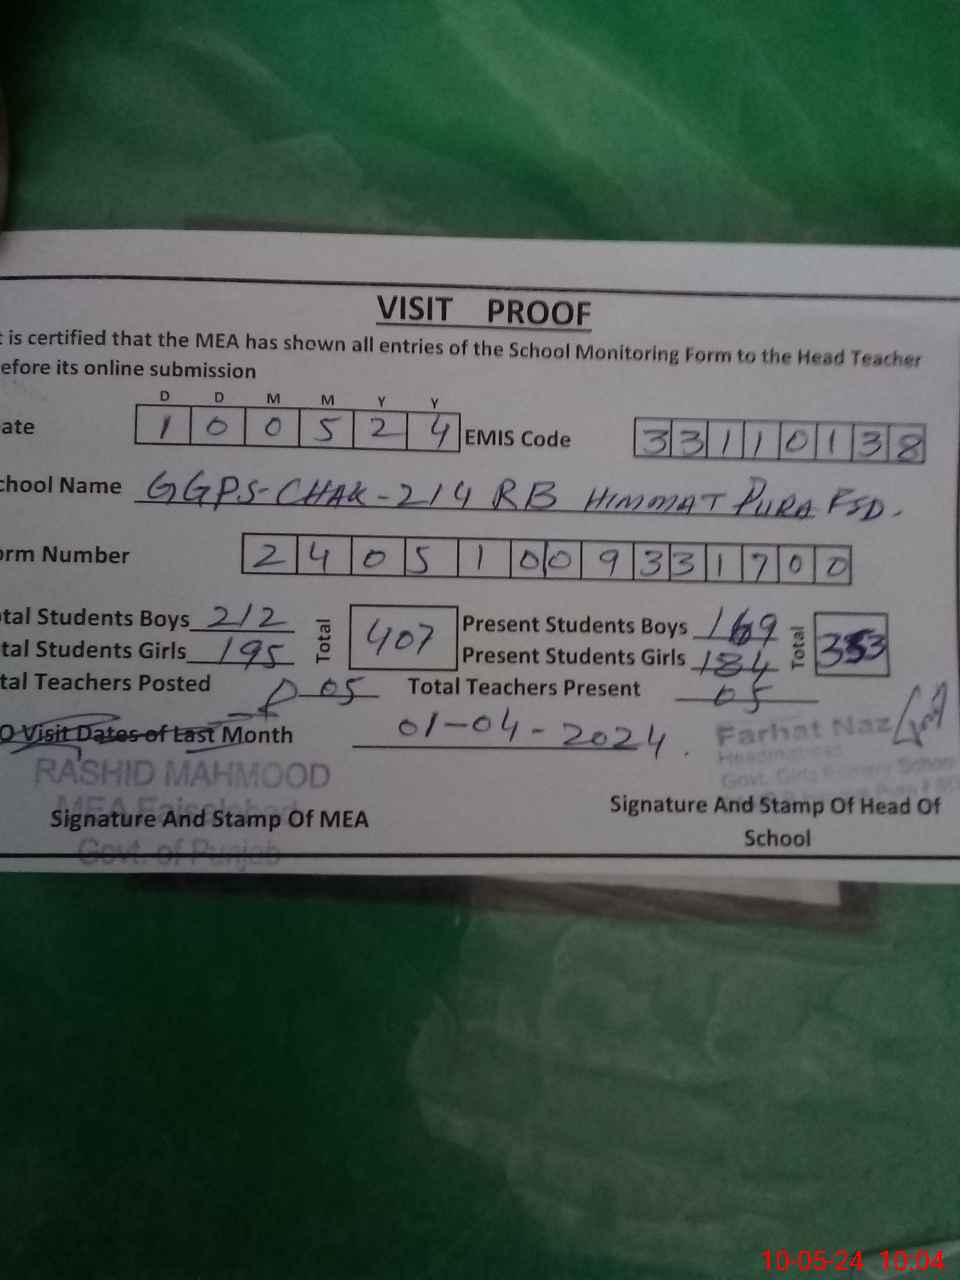 VISIT PROOF
is certified that the MEA has shown all entries of the School Monitoring Form to the Head Teacher
efore its online submission
D D M M Y Y
ate 1 0 0 5 2 4 EMIS Code 3 3 1 1 0 1 3 8
chool Name GGPS-CHAK-214 RB HIMMAT PURA FSD.
orm Number 2 4 0 5 1 0 0 9 3 3 1 7 0 0
tal Students Boys 212 Total 407 Present Students Boys 169 Total 353
tal Students Girls 195 Present Students Girls 184
tal Teachers Posted 05 Total Teachers Present 05
O Visit Dates of Last Month 01-04-2024.
Farhat Naz
Headmistress
Govt. Girls Primary School
RASHID MAHMOOD
MEA Faisalabad
Govt. of Punjab
Signature And Stamp Of MEA
Signature And Stamp Of Head Of
School
10-05-24 10:04